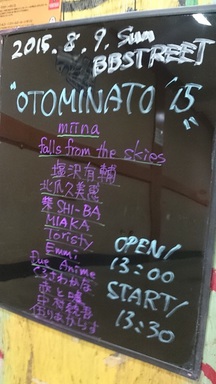 2015.8.9.Sun
BBSTREET
"OTOMINATO '15"
miina
falls from the skies
塩沢有輔
北爪久美恵
柴SHI-BA
MIAKA
Toristy
Emmi
Pue Anime
OPEN/
13:00
START/
13:30